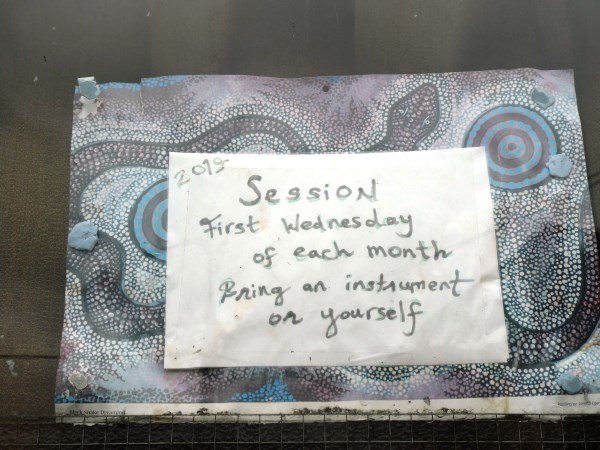 2019
Session
First Wednesday
of each month
Bring an instrument
or yourself